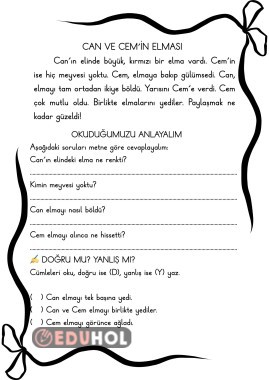 CAN VE CEM'İN ELMASI
Can'ın elinde büyük, kırmızı bir elma vardı. Cem'in
ise hiç meyvesi yoktu. Cem, elmaya bakıp gülümsedi. Can,
elmayı tam ortadan ikiye böldü. Yarısını Cem'e verdi. Cem
çok mutlu oldu. Birlikte elmalarını yediler. Paylaşmak ne
kadar güzeldi!
OKUDUĞUMUZU ANLAYALIM
Aşağıdaki soruları metne göre cevaplayalım:
Can'ın elindeki elma ne renkti?
Kimin meyvesi yoktu?
Can elmayı nasıl böldü?
Cem elmayı alınca ne hissetti?
✍️ DOĞRU MU? YANLIŞ MI?
Cümleleri oku, doğru ise (D), yanlış ise (Y) yaz.
( ) Can elmayı tek başına yedi.
( ) Can ve Cem elmayı birlikte yediler.
( ) Cem elmayı görünce ağladı.
EDUHOL